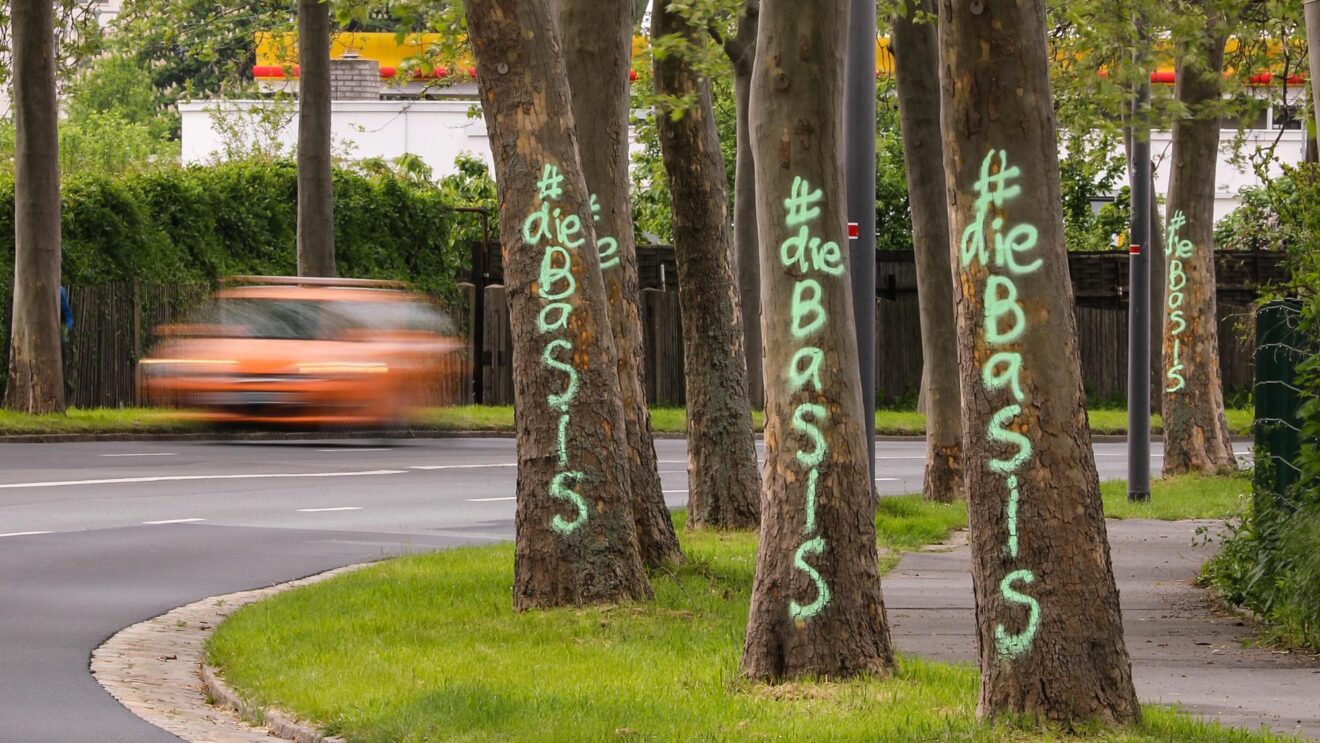 #
die
Basis
e
#
die
Basis
#
die
Basis
#die
Basis